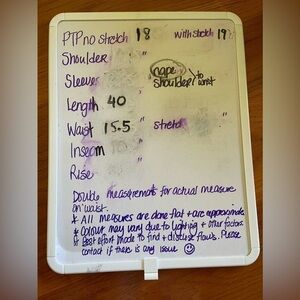 PTP no stretch 18 " with stretch 19"
Shoulder "
Sleeves " nape shoulder to wrist
Length 40 "
Waist 15.5 " stretch "
Inseam "
Rise "
Double measurements for actual measure
on waist.
* All measures are done flat + are approximate
* Colour may vary due to lighting + other factors
* Best effort made to find + disclose flaws. Please
contact if there is any issue ☺